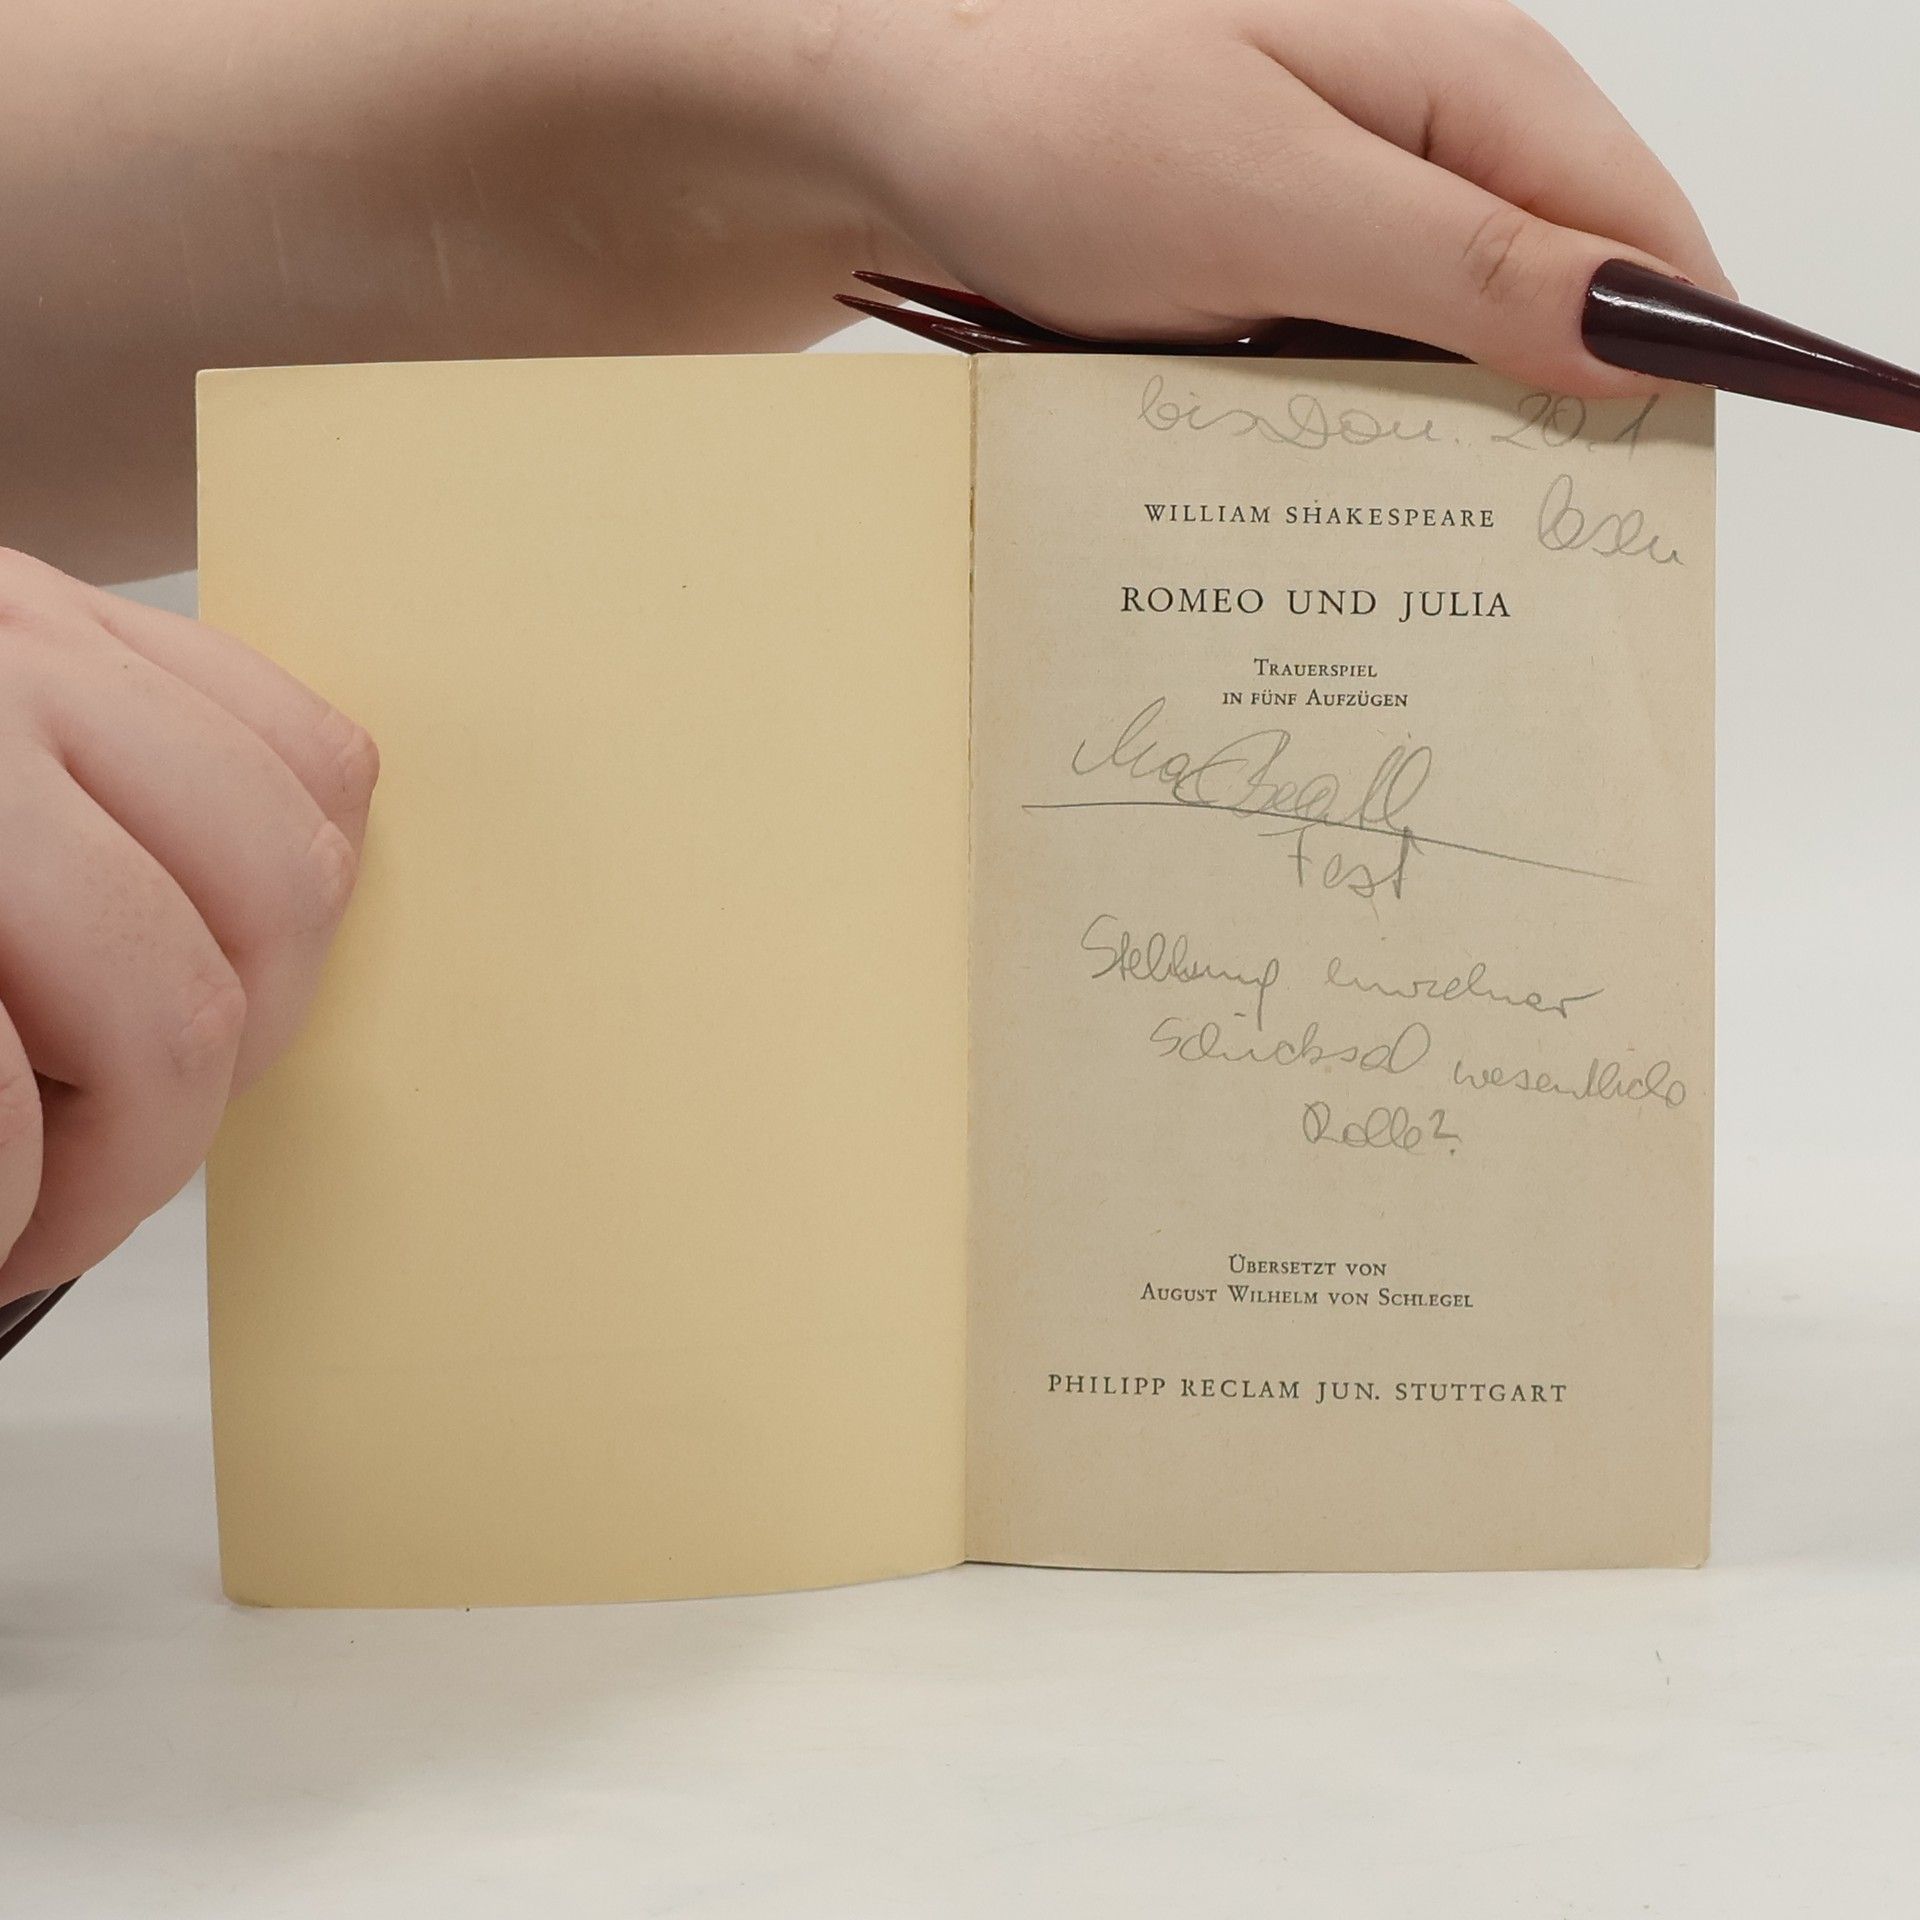 bis Don. 20.1
WILLIAM SHAKESPEARE
lesen
ROMEO UND JULIA
TRAUERSPIEL
IN FÜNF AUFZÜGEN
MacBeth
Test
Stellung einzelner
Schicksal wesentliche
Rolle?
ÜBERSETZT VON
AUGUST WILHELM VON SCHLEGEL
PHILIPP RECLAM JUN. STUTTGART